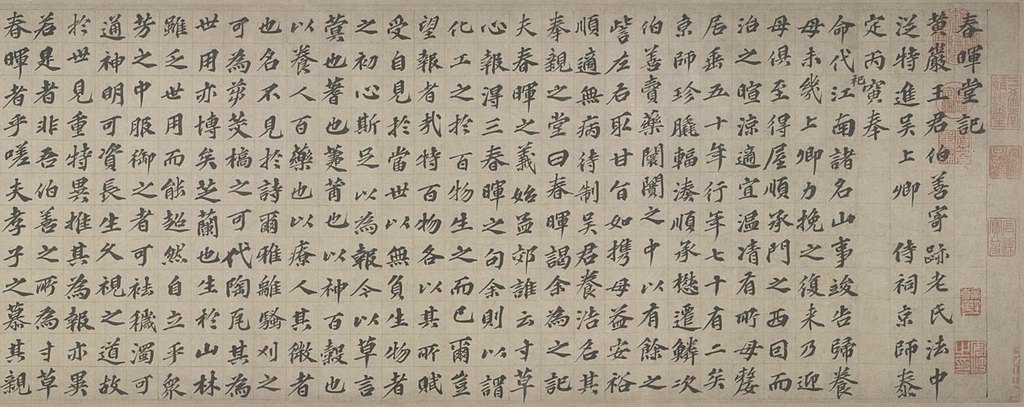 春暉堂記
黄巖王君伯善寄跡老氏法中
從特進吳上卿 侍祠京師泰
定丙寅奉
命代祀江南諸名山事竣告歸養
母未幾上卿力挽之復来乃迎
母俱至得屋順承門之西日而
治之暄涼適宜温凊有所母嫠
居垂五十年行年七十有二矣
京師珍輻湊順承懋遷鱗次
伯善賣藥闤闠之中以有餘之
訾左右取甘旨如携母益安裕
順適無病待制吴君養浩名其
奉親之堂曰春暉謁余為之記
夫春暉之義始益郊誰云寸草
心報得三春暉之句余則以謂
化工之於百物生之而已爾豈
望報者哉特百物各以其所賦
受自見於當世以無負生物者
之初心斯足以為報今以草言
蓂也蓍也萐莆也以神百穀也
以養人百藥也以療人其微者
也名不見於詩爾雅離騷刈之
可為蒭茭槁之可代陶瓦其為
世用亦博矣芝蘭也生於山林
雖乏世用而能超然自立乎衆
芳之中服御之者可祛穢濁可
通神明可資長生久視之道故
於世見重特異推其為報亦異
若是者非吾伯善之所為寸草
春暉者乎嗟夫孝子之慕其親